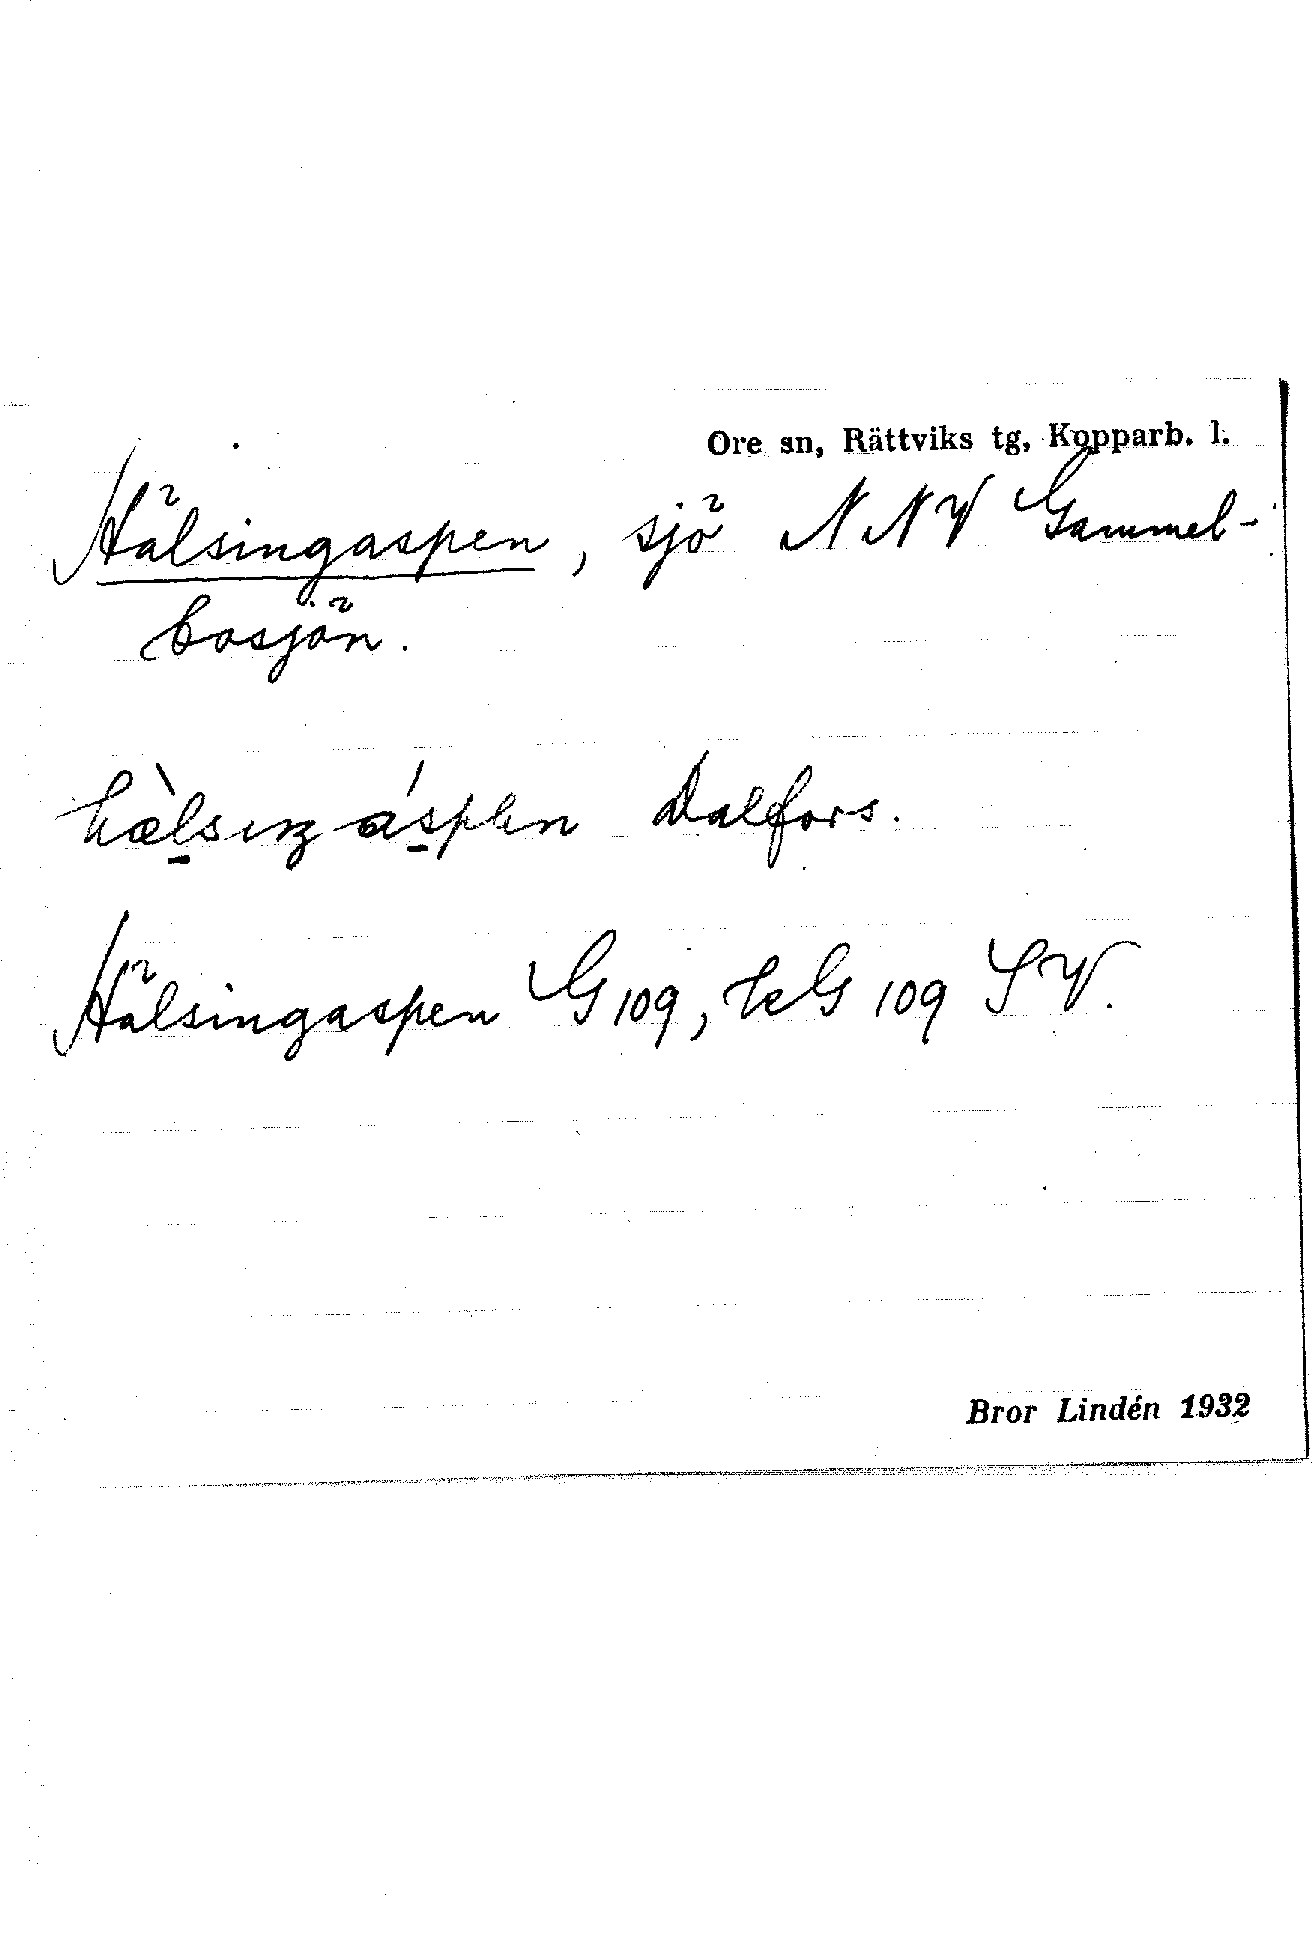 Ore sn, Rättviks tg, Kopparb. l.
Hälsingaspen, sjö NNV Gammel-
bosjön.
Dalfors.
Hälsingaspen G 109, kG 109 SV.
Bror Lindén 1932